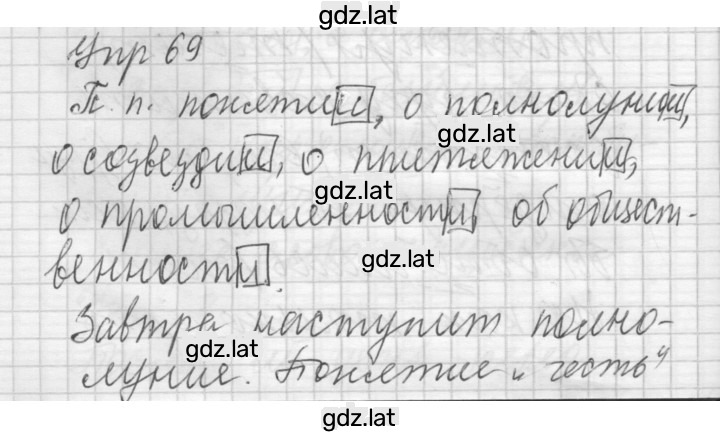 gdz.lat
Упр 69
П. п. понятии, о полнолунии,
gdz.lat
о созвездии, о притяжении,
gdz.lat
о промышленности, об общест-
венности.
gdz.lat
Завтра наступит полно-
gdz.lat
луние. Понятие „честь"
gdz.lat